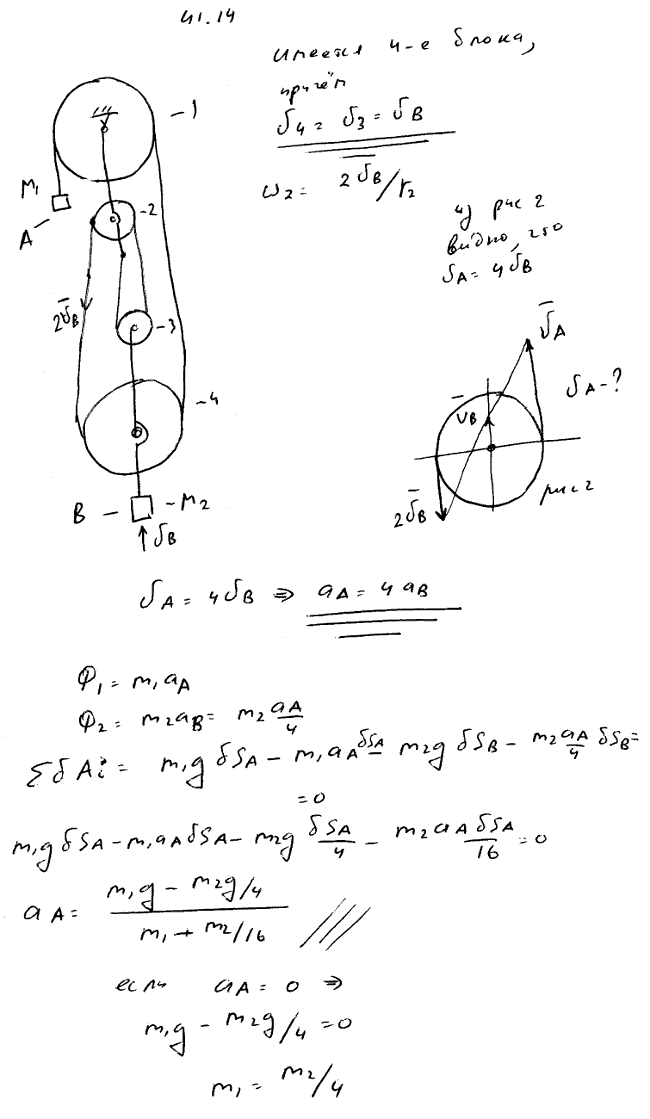 41.14
имеется 4-е блока,
причём
υ4 = υ3 = υB
ω2 = 2υ̅B/r2
из рис 2
видно, что
υA = 4υ̅B
-1
M1
A
-2
2υ̅B
-3
-4
B - - M2
υB
υ̅A
υA - ?
V̅B
2υ̅B
рис 2
υA = 4υB ⇒ aA = 4aB
Φ1 = m1aA
Φ2 = m2aB = m2 aA/4
ΣδAi = m1g δSA - m1aA δSA - m2g δSB - m2 aA/4 δSB =
= 0
m1g δSA - m1aA δSA - m2g δSA/4 - m2aA δSA/16 = 0
aA = (m1g - m2g/4)/(m1 + m2/16)
если aA = 0 ⇒
m1g - m2g/4 = 0
m1 = m2/4